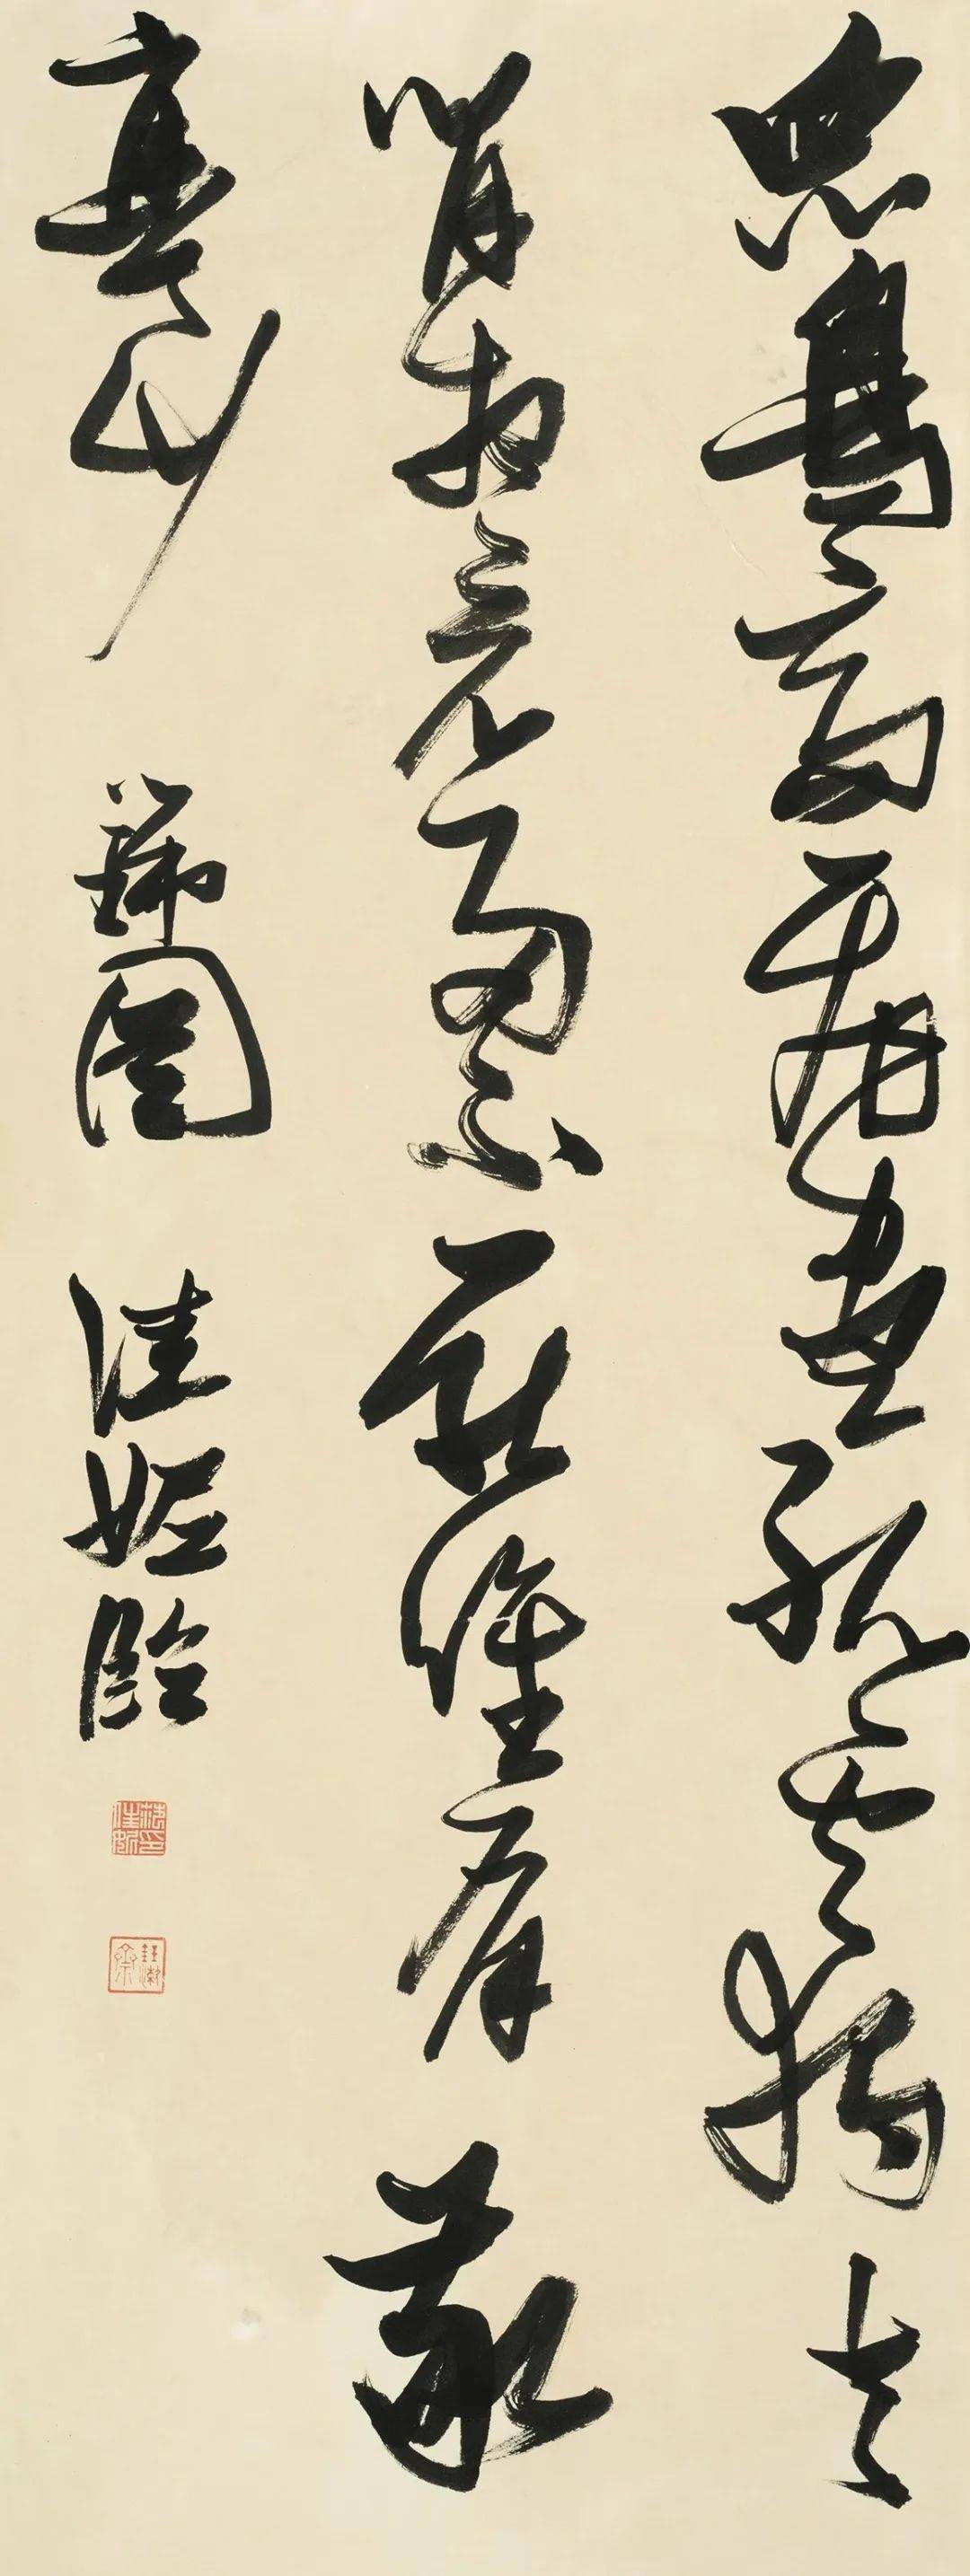 眾鳥高飛盡孤雲獨去
閒相看兩不厭惟有敬
亭山 瑞圖 佳 臨